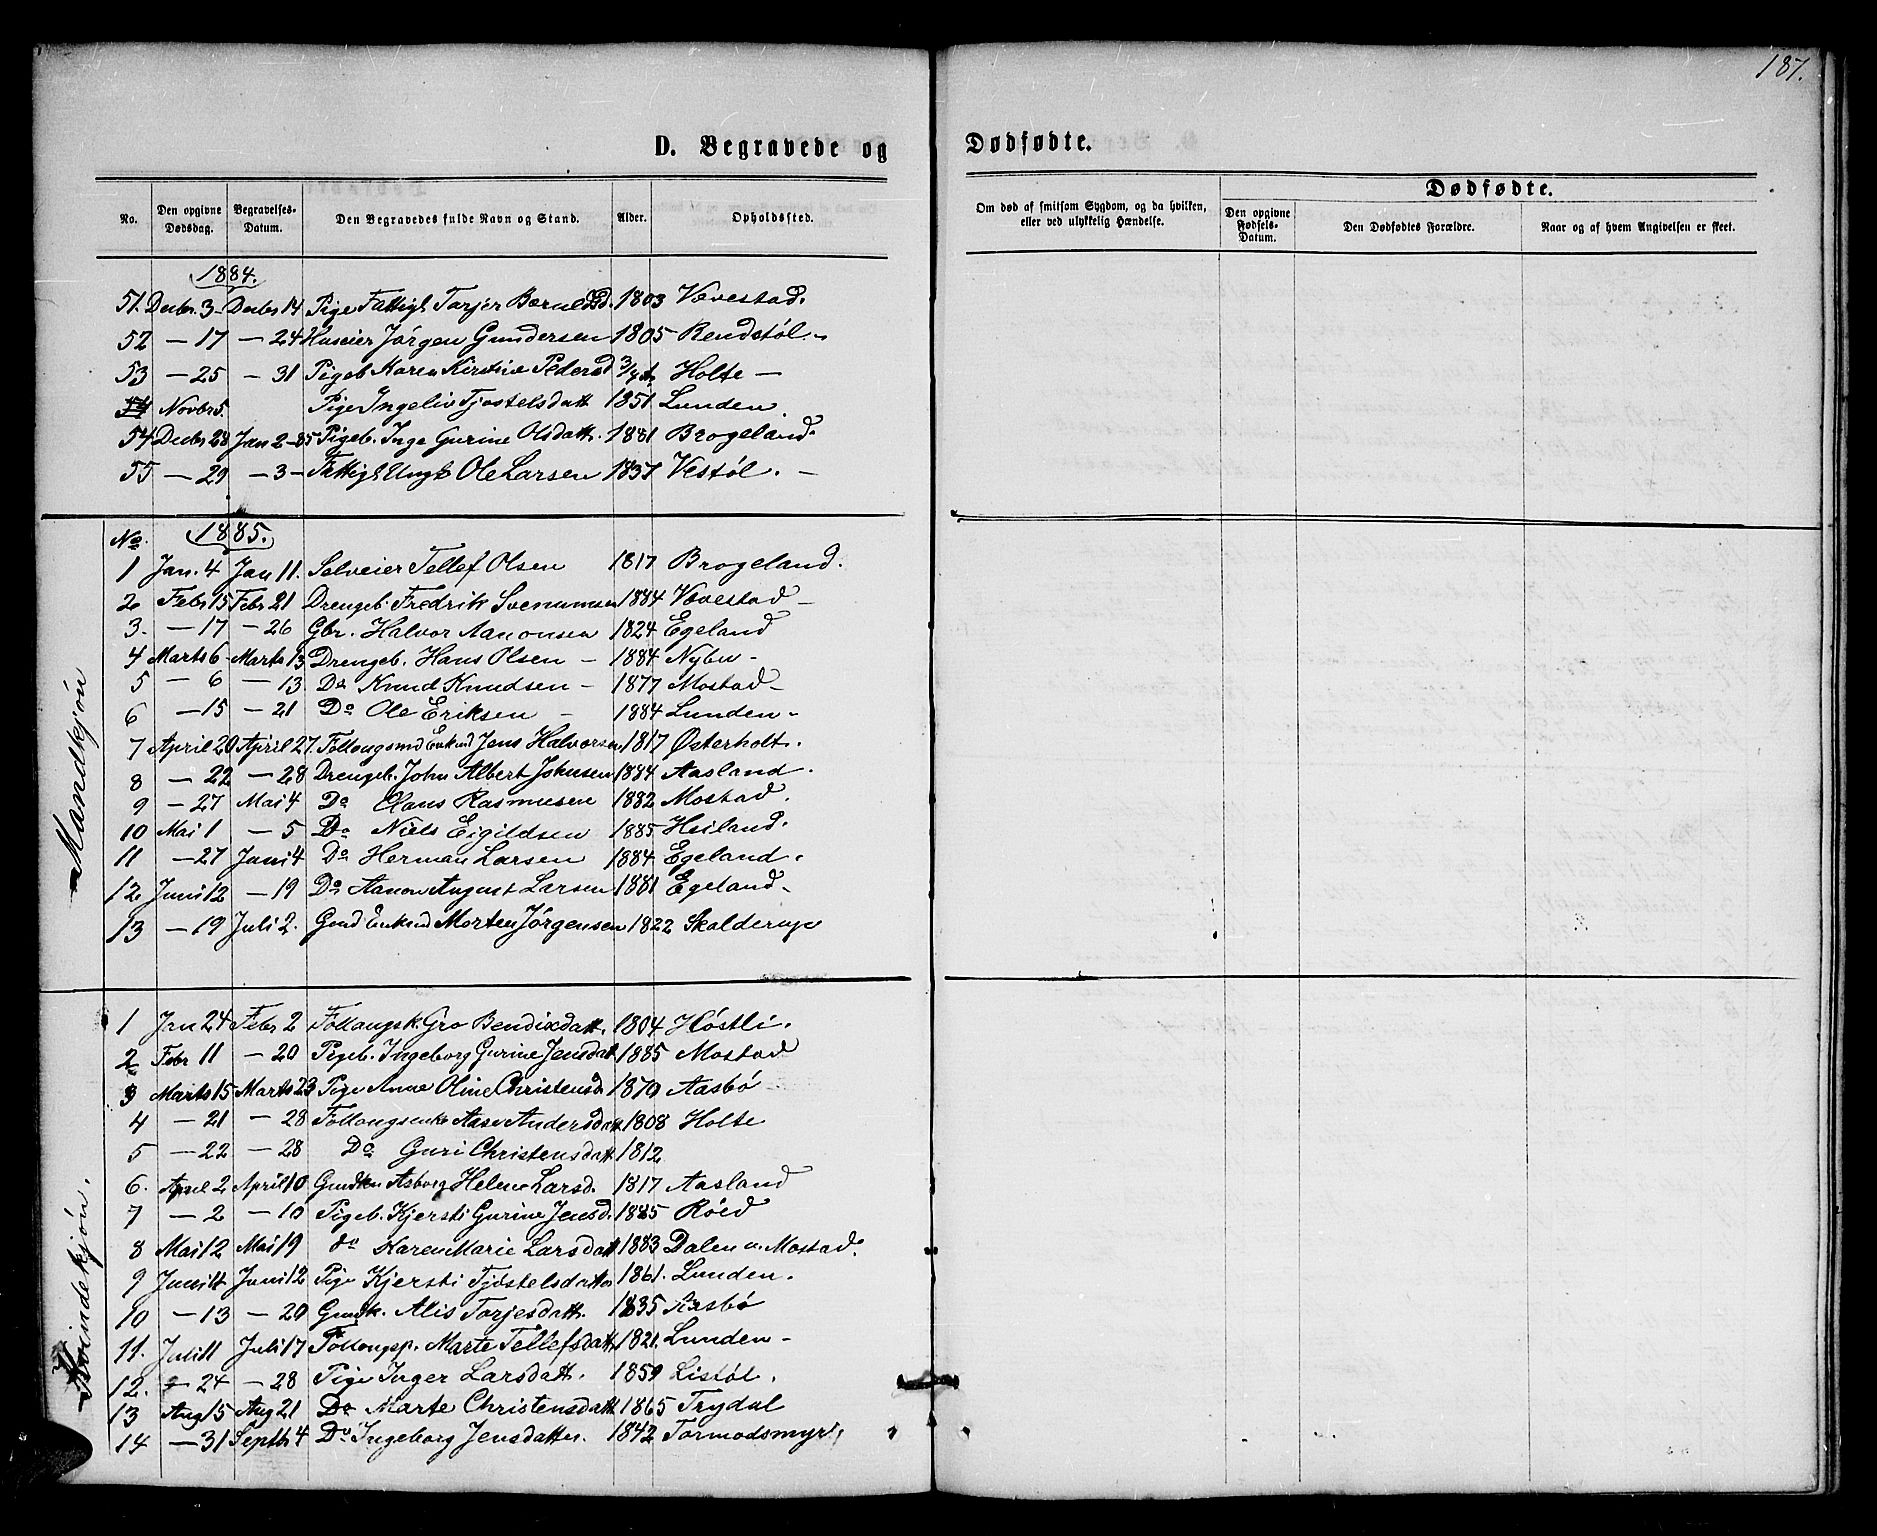 187.
D. Begravede og Dødfødte.
No. Den opgivne Dødsdag. Begravelses-Datum. Den Begravedes fulde Navn og Stand. Alder. Opholdssted. Om død af smitsom Sygdom, og da hvilken, eller ved ulykkelig Hændelse. Dødfødte. Den opgivne Fødsels-Datum. Den Dødfødtes Forældre. Naar og af hvem Angivelsen er skeet.
1884.
51. Decbr. 3 Decbr 14 Pige Fattigl Tarjer 1803 Vævestad.
52 — 17 — 24 Huseier Jørgen Gundersen 1805 Rendstøl.
53 — 25 — 31 Pigeb Karen Kirstine Pedersd Holte —
54 Novbr 5. Pige Ingeliv Tjøstelsdatt 1851 Lunden.
54 Decbr 28 Jan 2-85 Pigeb. Inge Gurine Olsdatt. 1881 Brogeland.
55 — 29 — 3 — Fattigl Ungk Ole Larsen 1837 Vestøl. —
1885.
No.
Mandkjøn
1 Jan. 4 Jan 11. Selveier Tellef Olsen 1817 Brogeland.
2 Febr 15 Febr 21 Drengeb. Fredrik 1884 Vævestad —
3. — 17 — 26 Gbr. Halvor Aanonsen 1824 Egeland
4 Marts 6 Marts 13 Drengeb. Hans Olsen — 1884 Nybu —
5 — 6 — 13 Do Knud Knudsen — 1877 Mostad —
6 — 15 — 21 Do Ole Eriksen — 1884 Lunden —
7 April 20 April 27. Føllougsmd Enkmd Jens Halvorsen 1817 Østerholt.
8 — 22 — 28 Drengeb. John Albert Johnsen 1884 Aasland.
9 — 27 Mai 4 Do Claus Rasmusen 1882 Mostad.
10 Mai 1 — 5 Do Niels Eigildsen 1885 Heiland.
11 — 27 Juni 4 Do Herman Larsen 1884 Egeland.
12. Juni 12 — 19 Do Aanon August Larsen 1881 Egeland —
13 — 19 Juli 2. Gmd Enkmd Morten Jørgensen 1822 Skalderup
Kvindekjøn.
1 Jan 24 Febr 2 Føllougsk. Gro Bendixdatt. 1804 Høstli.
2 Febr 11 — 20 Pigeb. Ingeborg Gurine Jensdat. 1885 Mostad
3 Marts 15 Marts 23 Pige Anne Oline Christensd 1870 Aasbø
4 — 21 — 28 Føllougsenke Aase Andersdat. 1808 Holte
5 — 22 — 28 Do Guri Christensdatt 1812
6. April 2 April 10 Gmdkn Asborg Helene Larsd. 1817 Aasland
7 — 2 — 10 Pigeb. Kjersti Gurine Jensd. 1885 Røed
8 Mai 12 Mai 19 do Karen Marie Larsdatt 1883 Dalen u. Mostad.
9 Juni 4 Juni 12 Pige Kjersti Tjøstelsdatter 1861. Lunden.
10 — 13 — 20 Gmdk. Alis Torjesdatt. 1835 Aasbø
11. Juli 11 Juli 17 Føllougsp. Marte Tellefsdatt. 1821. Lunden —
12. — 24 — 28 Pige Inger Larsdatt. 1859 Listøl.
13 Aug 15 Aug 21 Do Marte Christensdatt 1865 Trydal
14 — 31 Septb 4 Do Ingeborg Jensdatter. 1842 Tormodsmyr.